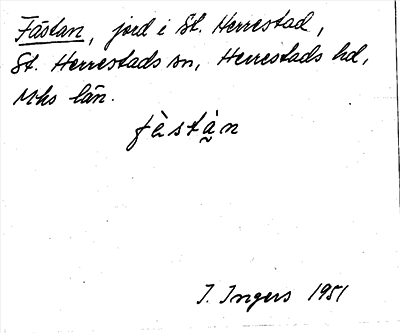 Fästan, jord i St. Herrestad,
St. Herrestads sn, Herrestads hd,
Mhs län.
fὲstàn
I. Ingers 1951